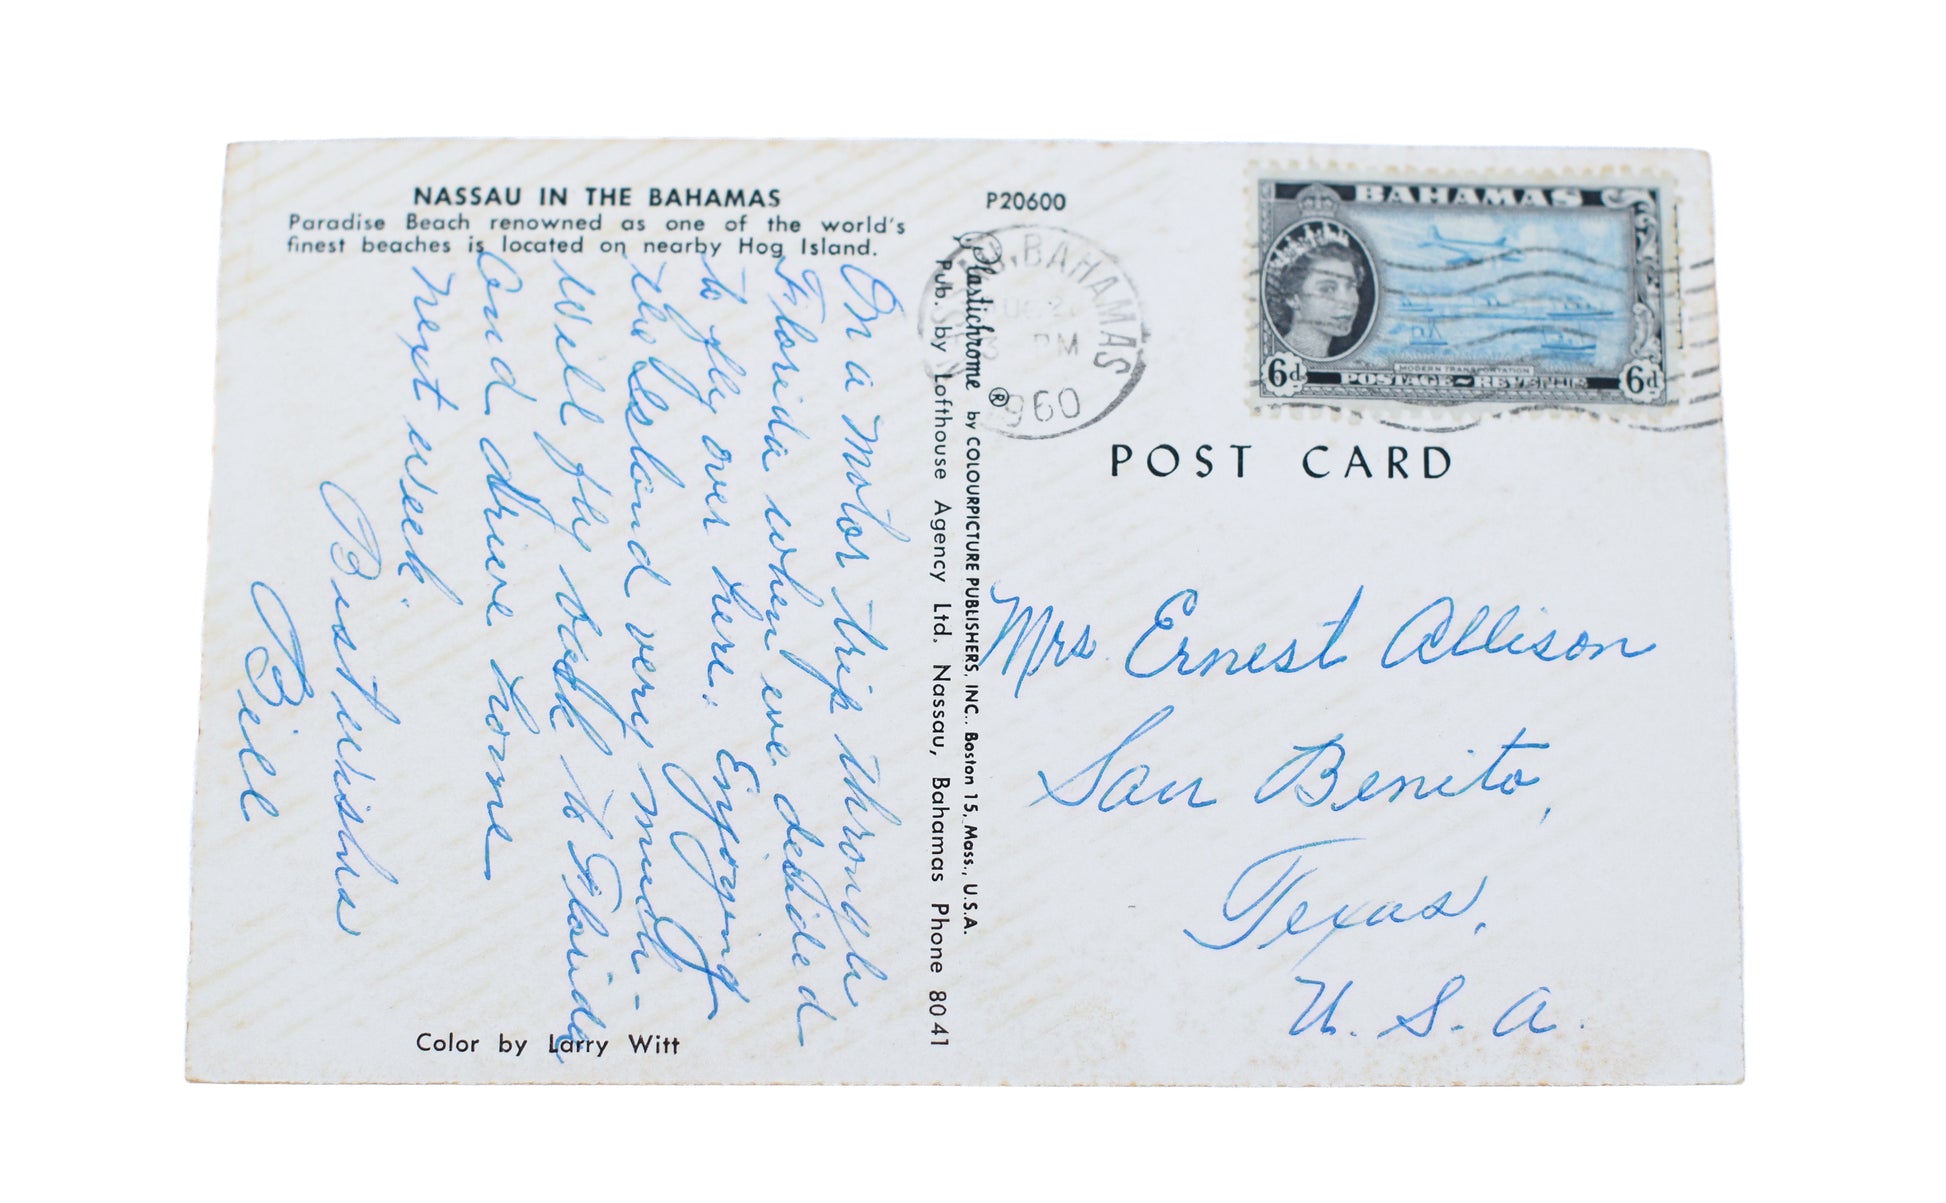 NASSAU IN THE BAHAMAS
Paradise Beach renowned as one of the world's
finest beaches is located on nearby Hog Island.
On a motor trip through
Florida when we decided
to fly over here. Enjoying
the Island very much -
Will fly back to Florida
and drive home
next week.
Best wishes
Bill
Color by Larry Witt
P20600
Plastichrome ® by COLOURPICTURE PUBLISHERS, INC., Boston 15, Mass., U.S.A.
Pub. by Lofthouse Agency Ltd. Nassau, Bahamas Phone 8041
BAHAMAS
PM
1960
BAHAMAS
6d
MODERN TRANSPORTATION
POSTAGE ~ REVENUE
6d
POST CARD
Mrs. Ernest Allison
San Benito,
Texas.
U. S. A.